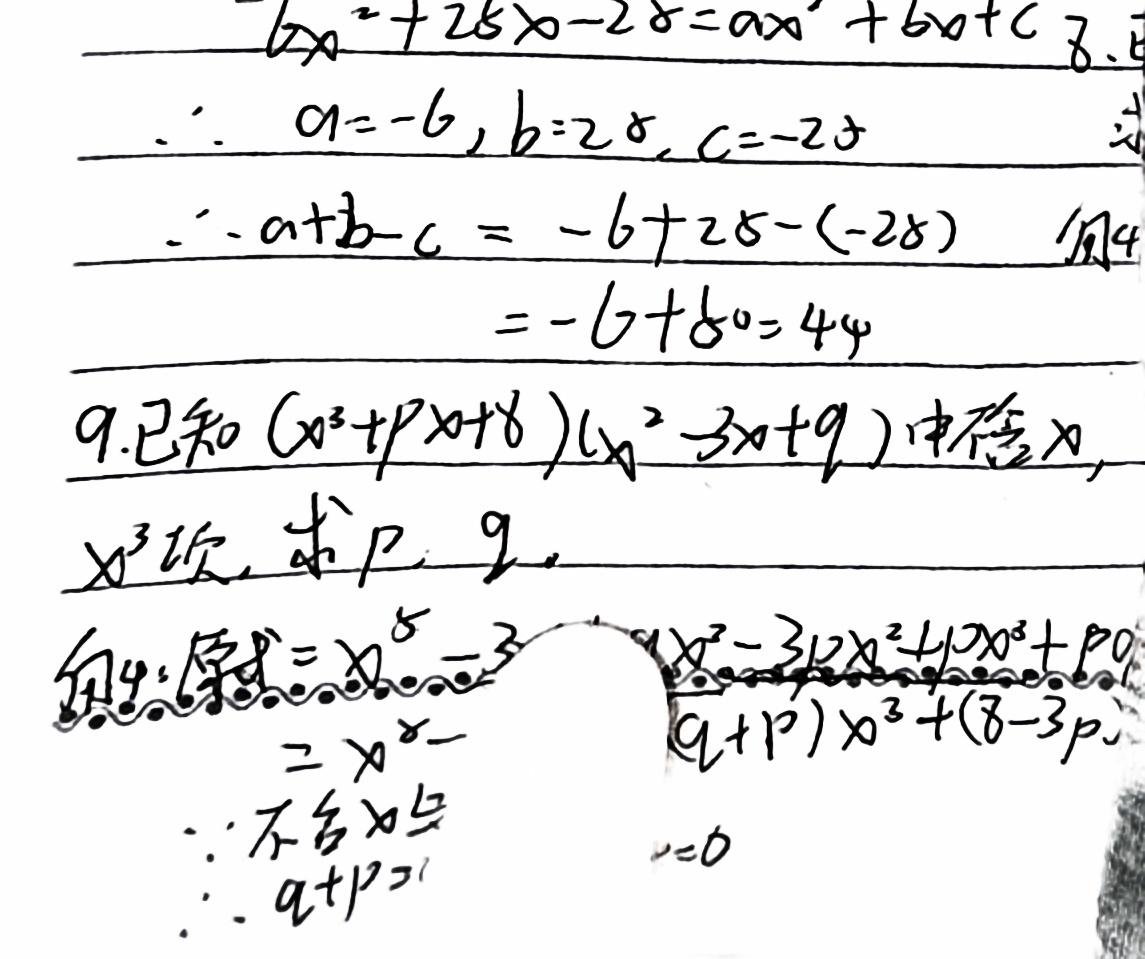 6x²+25x-25=ax²+bx+c 8.
∴ a=-6, b=25, c=-25
∴ a+b-c = -6+25-(-25) 解
=-6+50=44
9.已知(x³+px+8)(x²-3x+q)中不含x,
x³项.求p,q.
解:原式=x⁵-3 qx³-3px²+px³+pq
=x⁵- (q+p)x³+(8-3p)
∵不含x与
∴q+p= =0